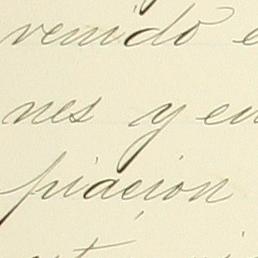 venido e
nes y en
piación